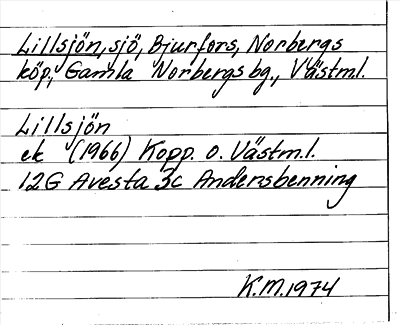 Lillsjön, sjö, Bjurfors, Norbergs
köp., Gamla Norbergs bg., Västml.
Lillsjön
ek (1966) Kopp. o. Västm.l.
12G Avesta 3c Andersbenning
K.M. 1974